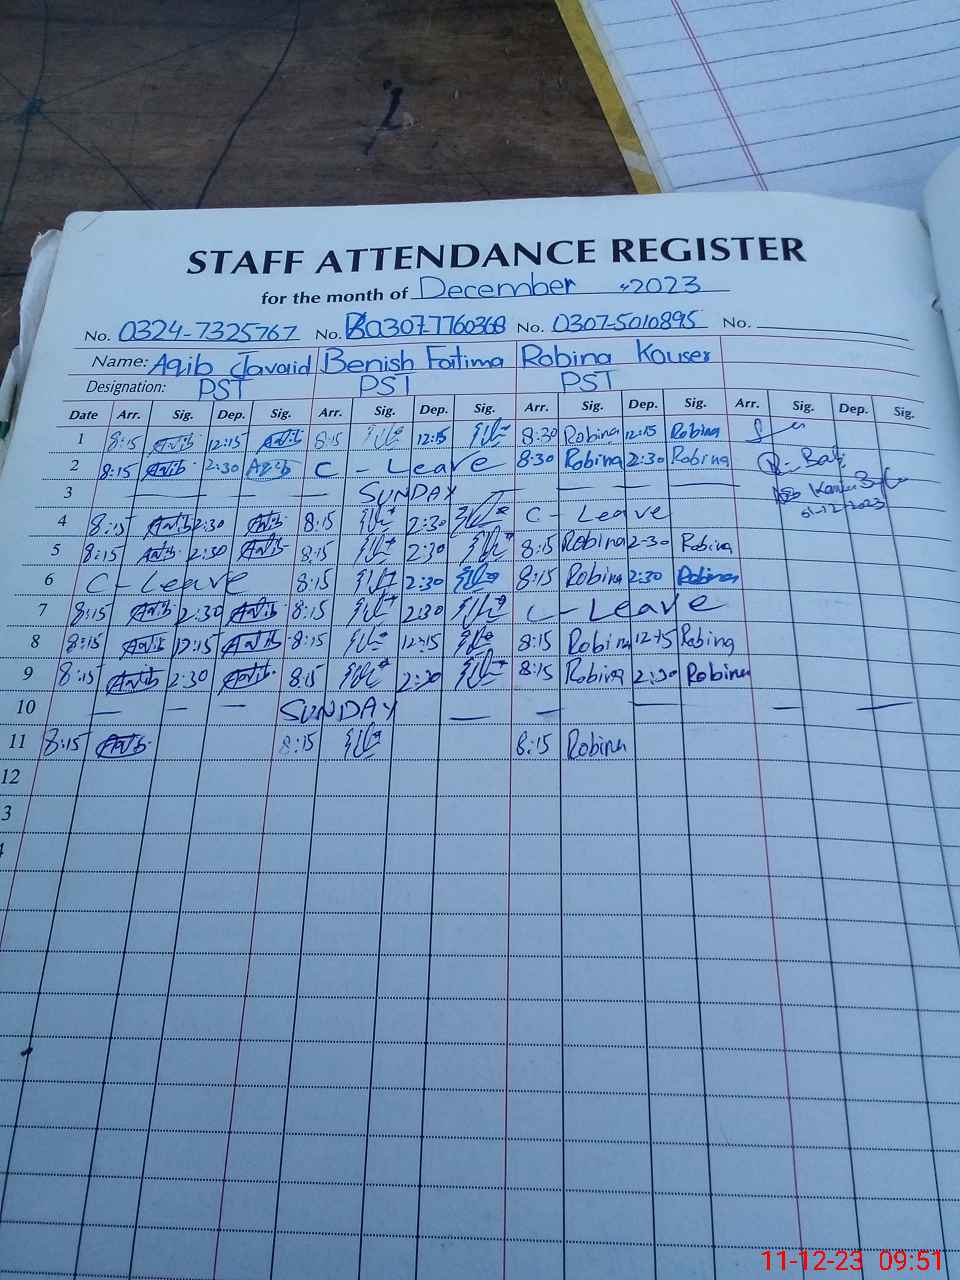 STAFF ATTENDANCE REGISTER
for the month of December 2023
No. 0324-7325767 No. 0307-7760368 No. 0307-5010895 No.
Name: Aqib Javaid Benish Fatima Robina Kouser
Designation: PST PST PST
Date Arr. Sig. Dep. Sig. Arr. Sig. Dep. Sig. Arr. Sig. Dep. Sig. Arr. Sig. Dep. Sig.
1 8:15 Aqib 12:15 Aqib 8:15 12:15 8:30 Robina 12:15 Robina
2 8:15 Aqib 2:30 Aqib C - Leave 8:30 Robina 2:30 Robina
3 SUNDAY
4 8:15 Aqib 2:30 Aqib 8:15 2:30 C - Leave
01-12-2023
5 8:15 Aqib 2:30 Aqib 8:15 2:30 8:15 Robina 2-30 Robina
6 C - Leave 8:15 2:30 8:15 Robina 2:30 Robina
7 8:15 Aqib 2:30 Aqib 8:15 2:30 C - Leave
8 8:15 Aqib 12:15 Aqib 8:15 12:15 8:15 Robina 12:15 Robina
9 8:15 Aqib 2:30 Aqib 8:15 2:30 8:15 Robina 2:30 Robina
10 SUNDAY
11 8:15 Aqib 8:15 8:15 Robina
12
3
4
11-12-23 09:51